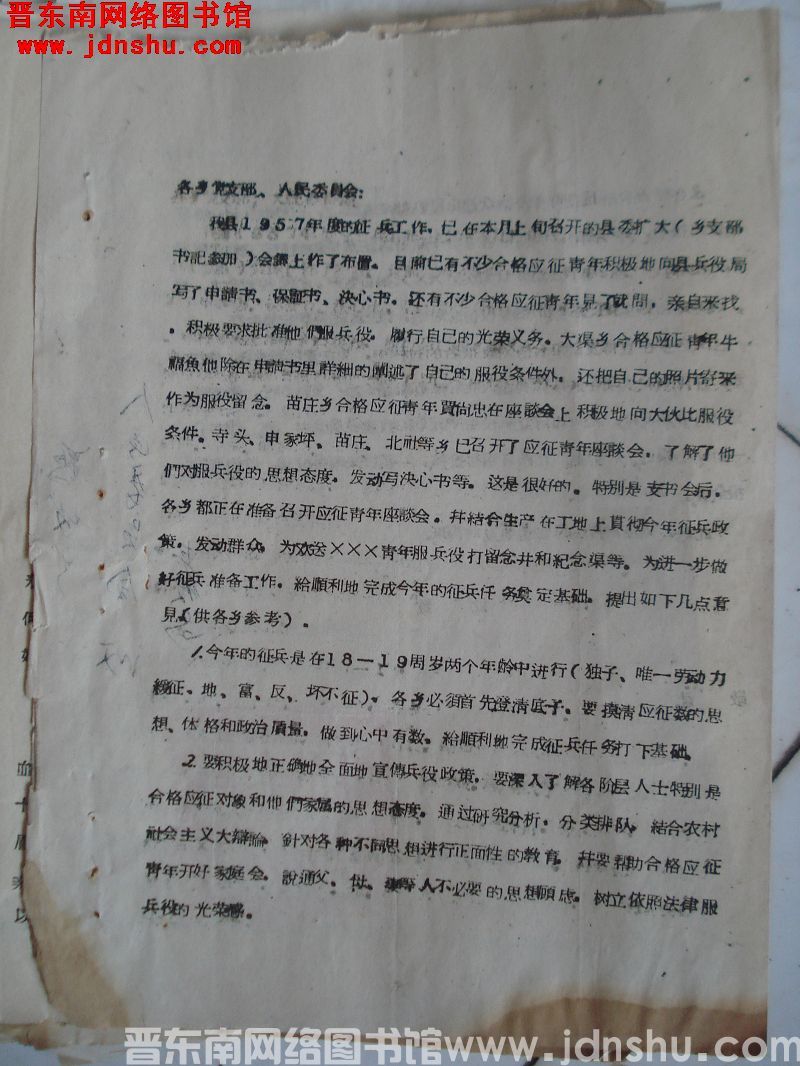 晋东南网络图书馆
www.jdnshu.com
各乡党支部、人民委員会:
我县1957年度的征兵工作，已在本月上旬召开的县委扩大（乡支部
书記参加）会議上作了布置。目前已有不少合格应征青年积极地向县兵役局
写了申請书、保証书、决心书。还有不少合格应征青年見了就問，亲自来找
，积极要求批准他們服兵役，履行自己的光荣义务。大渠乡合格应征青年牛
福魚他除在申請书里詳細的闡述了自己的服役条件外，还把自己的照片寄来
作为服役留念。苗庄乡合格应征青年賈尚忠在座談会上积极地向大伙比服役
条件。寺头、申家坪、苗庄、北社等乡已召开了应征青年座談会，了解了他
們对服兵役的思想态度，发动写决心书等。这是很好的。特别是支书会后，
各乡都正在准备召开应征青年座談会。并結合生产在工地上貫彻今年征兵政
策，发动群众，为欢送×××青年服兵役打留念井和紀念渠等。为进一步做
好征兵准备工作，給順利地完成今年的征兵任务奠定基础，提出如下几点意
見（供各乡参考）。
1.今年的征兵是在18—19周岁两个年龄中进行（独子、唯一劳动力
緩征。地、富、反、坏不征）。各乡必須首先澄清底子。要摸清应征数的思
想、体格和政治質量，做到心中有数，給順利地完成征兵任务打下基础。
2.要积极地正确地全面地宣傳兵役政策。要深入了解各阶层人士特别是
合格应征对象和他們家属的思想态度。通过研究分析，分类排队，結合农村
社会主义大辯論，針对各种不同思想进行正面性的教育，并要帮助合格应征
青年开好家庭会，說通父、母、妻等人不必要的思想顧虑，树立依照法律服
兵役的光荣感。
晋东南网络图书馆www.jdnshu.com